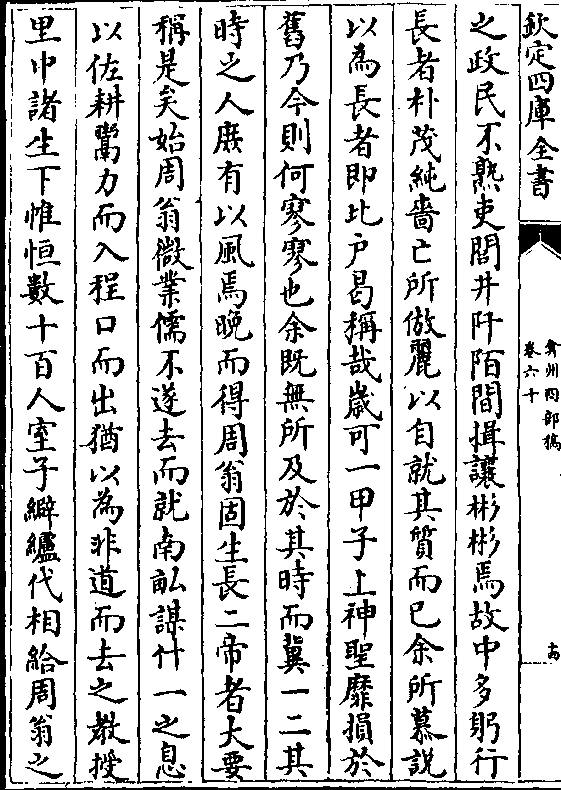 欽定四庫全書
弇州四部稿
卷六十
十四
之政民不熟吏閭井阡陌間揖讓彬彬焉故中多躬行
長者朴茂純嗇亡所倣麗以自就其質而已余所慕說
以為長者即比户曷稱哉嵗可一甲子上神聖靡損於
舊乃今則何寥寥也余既無所及於其時而冀一二其
時之人庻有以風焉晩而得周翁固生長二帝者大要
稱是矣始周翁微業儒不遂去而就南畆謀什一之息
以佐耕鬻力而入程口而出猶以為非道而去之教授
里中諸生下帷恒數十百人室子緶纑代相給周翁之